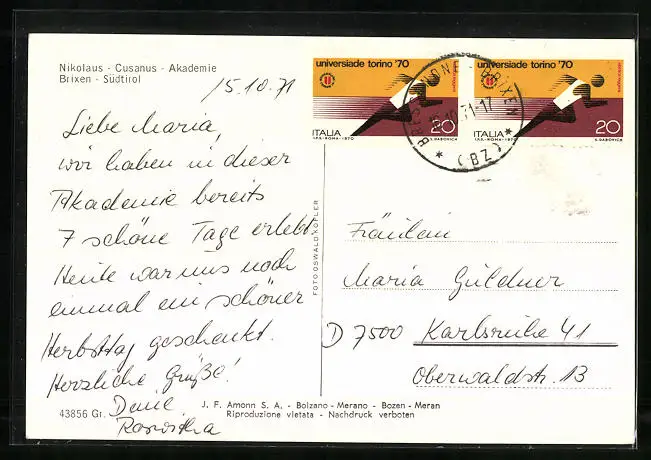 Nikolaus - Cusanus - Akademie
Brixen - Südtirol
15.10.71
Liebe Maria,
wir haben in dieser
Akademie bereits
7 schöne Tage erlebt.
Heute war uns noch
einmal ein schöner
Herbsttag geschenkt.
Herzliche Grüße!
Deine
Roswitha
43856 Gr.
J. F. Amonn S. A. - Bolzano - Merano - Bozen - Meran
Riproduzione vietata - Nachdruck verboten
FOTO OSWALD KOFLER
universiade torino '70
ITALIA
I.P.S.-ROMA-1970
20
universiade torino '70
ITALIA
I.P.S.-ROMA-1970
20
BRESSANONE - BRIXEN
(BZ)
Fräulein
Maria Güldner
D 7500 Karlsruhe 41
Oberwaldstr. 13